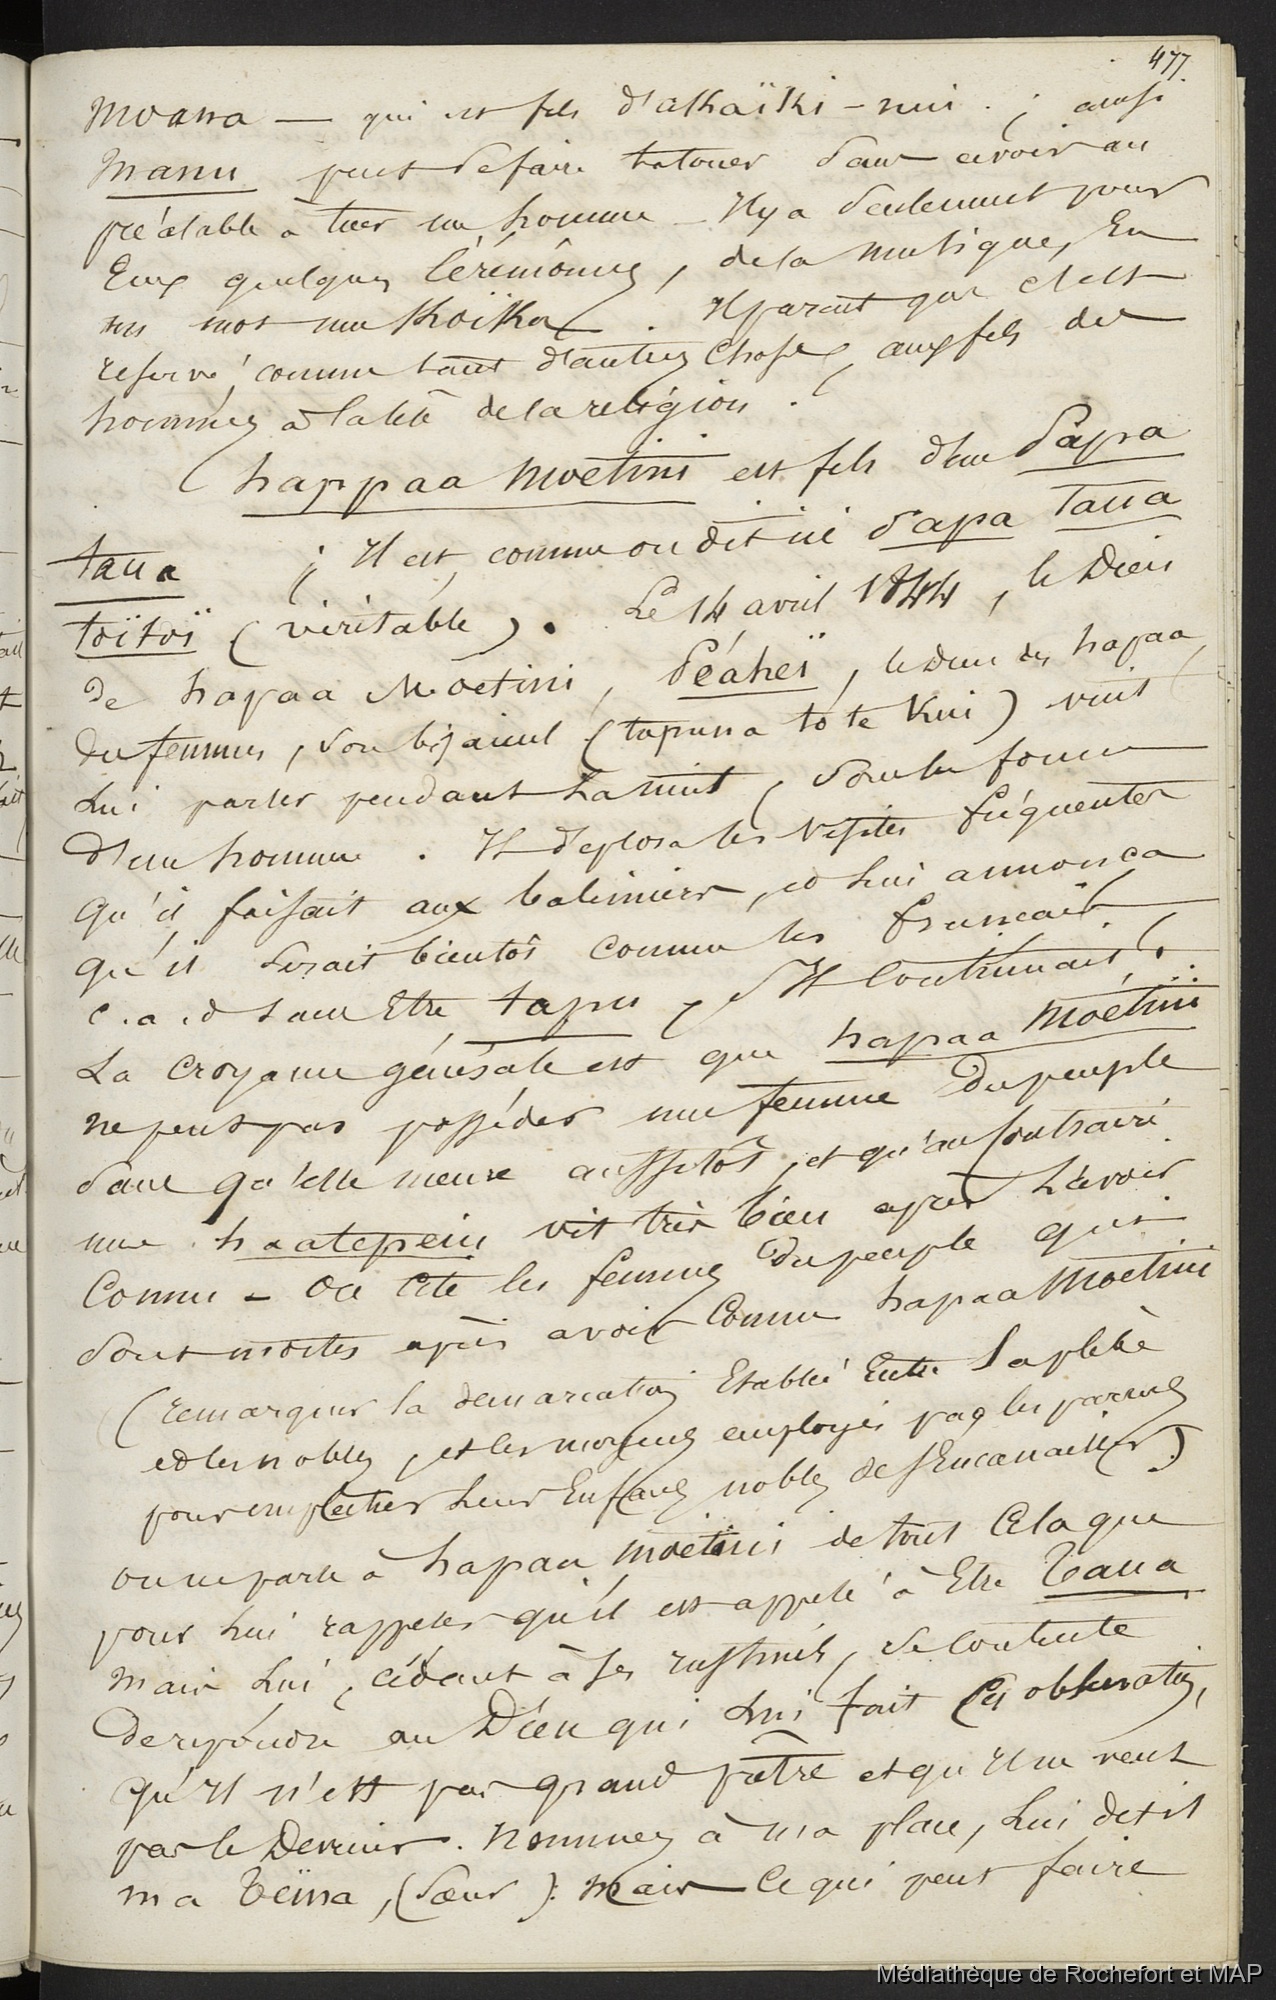 477
Moana — qui est fils d'akaïki-nui ; ainsi
Manu peut se faire tatouer sans avoir au
préalable à tuer un homme — Il y a seulement pour
Eux quelques Cérémônies, de la musique, En
un mot un Koïka. Il parait que c'est
reservé, comme tant d'autres choses, aux fils des
hommes à la tête de la religion.
(happaa Moetini est fils d'un Papa
taua ; Il est, comme on dit ici papa taua
toïtoï (véritable). Le 14 avril 1844, le Dieu
de hapaa Moetini, Péaheï, le Dieu des hapaa,
des femmes, son bisaieul (tapuna to te Kui) vint
lui parler pendant la nuit, sous la forme
d'un homme. Il déplora les visites fréquentes
qu'il faisait aux batimens, et lui annonça
qu'il serait bientôt comme les français,
c. a. d sans Etre tapu, s'Il Continuait.
La croyance générale est que hapaa Moétini
ne peut pas posséder une femme du peuple
sans qu'elle meure aussitôt, et qu'au contraire
une haatepeiu vit très bien après l'avoir
Connu — On cite les femmes du peuple qui
sont mortes après avoir Connu hapaa Moetini
(remarquer la demarcation Etablie Entre la plèbe
et les nobles, et les moyens employés par les parens
pour empêcher leurs Enfans nobles de s'Encanailler)
on me parle à hapaa Moetini de tout Cela que
pour lui rappeler qu'il est appelé à Etre Taua
mais lui, cédant à ses , se contente
de repondre au Dieu qui lui fait Ces observations,
qu'Il n'est pas grand prêtre et qu'Il ne veut
pas le Devenir. Nommez à ma place, lui dit-il
ma Teïna, (Sœur) : Mais Ce qui peut faire
Médiathèque de Rochefort et MAP